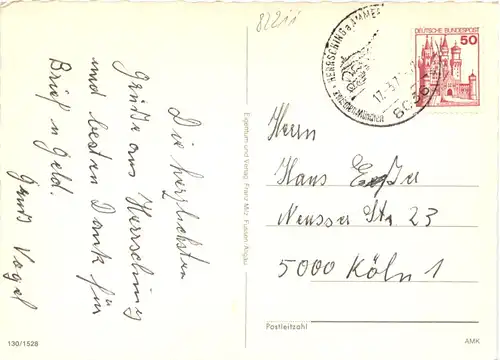 82211
Die herzlichsten
Grüße aus Herrsching
und besten Dank für
Brief u Geld.
Gruß Vogel
130/1528
Eigentum und Verlag Franz Milz, Füssen Allgäu
HERRSCHING a. AMMER
DEUTSCHE BUNDESPOST
50
Herrn
Hans
Neusser Str. 23
5000 Köln 1
Postleitzahl
AMK